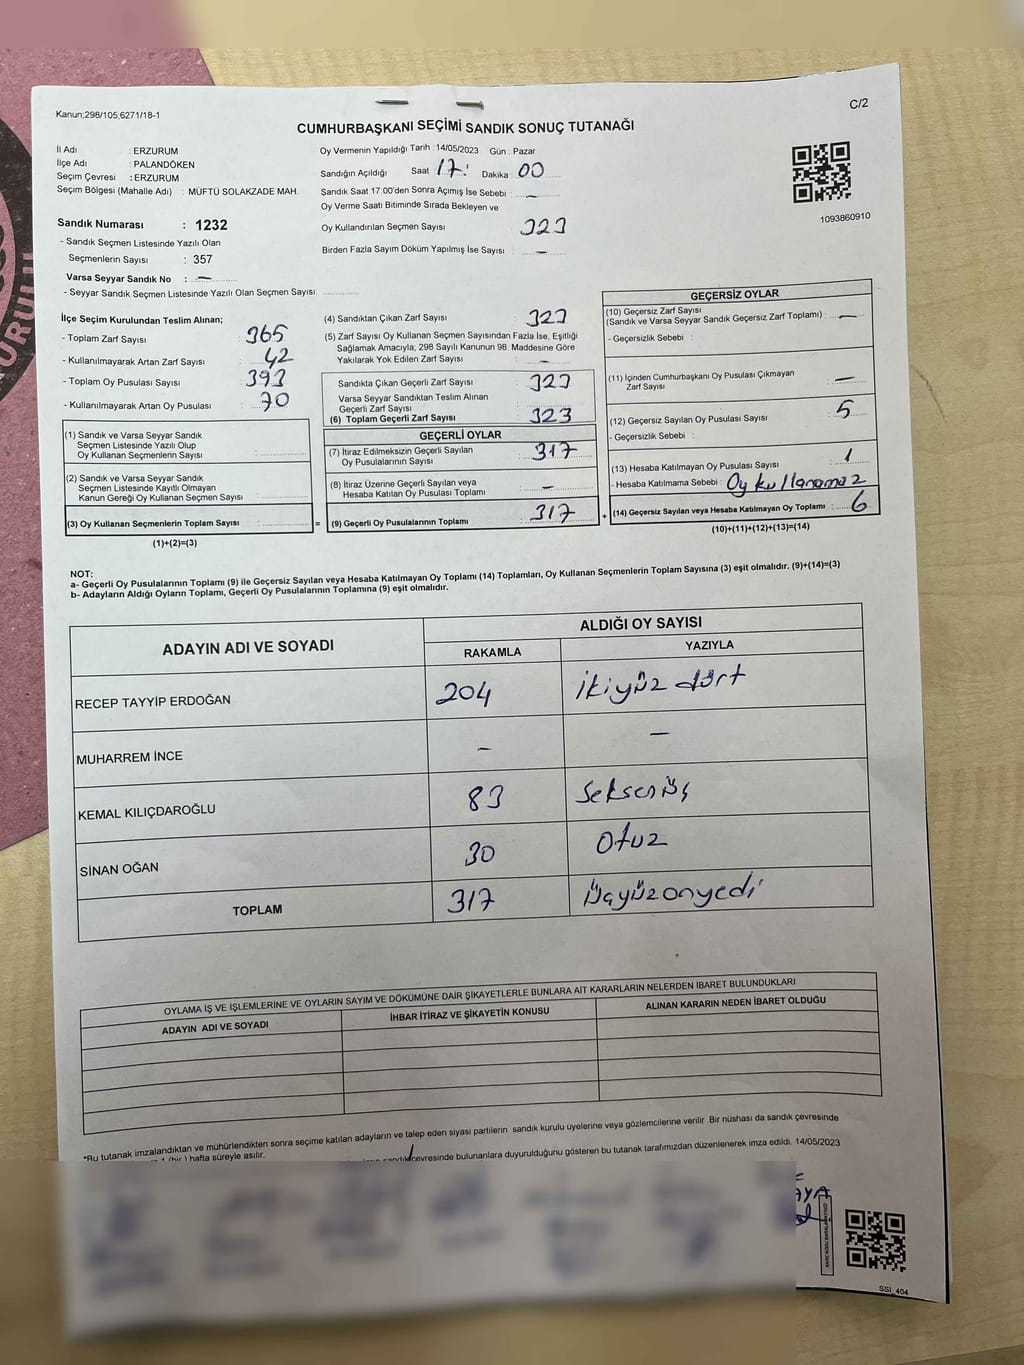 Kanun;298/105;6271/18-1
C/2
CUMHURBAŞKANI SEÇİMİ SANDIK SONUÇ TUTANAĞI
İl Adı : ERZURUM
İlçe Adı : PALANDÖKEN
Seçim Çevresi : ERZURUM
Seçim Bölgesi (Mahalle Adı) : MÜFTÜ SOLAKZADE MAH.
Sandık Numarası : 1232
- Sandık Seçmen Listesinde Yazılı Olan
Seçmenlerin Sayısı : 357
Varsa Seyyar Sandık No : —
- Seyyar Sandık Seçmen Listesinde Yazılı Olan Seçmen Sayısı:
Oy Vermenin Yapıldığı Tarih : 14/05/2023 Gün : Pazar
Sandığın Açıldığı Saat : 17: Dakika : 00
Sandık Saat 17:00'den Sonra Açımış İse Sebebi : —
Oy Verme Saati Bitiminde Sırada Bekleyen ve
Oy Kullandırılan Seçmen Sayısı : 323
Birden Fazla Sayım Döküm Yapılmış İse Sayısı : —
1093860910
İlçe Seçim Kurulundan Teslim Alınan;
- Toplam Zarf Sayısı : 365
- Kullanılmayarak Artan Zarf Sayısı : 42
- Toplam Oy Pusulası Sayısı : 393
- Kullanılmayarak Artan Oy Pusulası : 70
(1) Sandık ve Varsa Seyyar Sandık
Seçmen Listesinde Yazılı Olup
Oy Kullanan Seçmenlerin Sayısı :
(2) Sandık ve Varsa Seyyar Sandık
Seçmen Listesinde Kayıtlı Olmayan
Kanun Gereği Oy Kullanan Seçmen Sayısı :
(3) Oy Kullanan Seçmenlerin Toplam Sayısı : =
(1)+(2)=(3)
(4) Sandıktan Çıkan Zarf Sayısı : 323
(5) Zarf Sayısı Oy Kullanan Seçmen Sayısından Fazla İse, Eşitliği
Sağlamak Amacıyla, 298 Sayılı Kanunun 98. Maddesine Göre
Yakılarak Yok Edilen Zarf Sayısı : —
Sandıkta Çıkan Geçerli Zarf Sayısı : 323
Varsa Seyyar Sandıktan Teslim Alınan
Geçerli Zarf Sayısı :
(6) Toplam Geçerli Zarf Sayısı : 323
GEÇERLİ OYLAR
(7) İtiraz Edilmeksizin Geçerli Sayılan
Oy Pusulalarının Sayısı : 317
(8) İtiraz Üzerine Geçerli Sayılan veya
Hesaba Katılan Oy Pusulası Toplamı : —
(9) Geçerli Oy Pusulalarının Toplamı : 317 +
GEÇERSİZ OYLAR
(10) Geçersiz Zarf Sayısı
(Sandık ve Varsa Seyyar Sandık Geçersiz Zarf Toplamı) : —
- Geçersizlik Sebebi :
(11) İçinden Cumhurbaşkanı Oy Pusulası Çıkmayan
Zarf Sayısı : —
(12) Geçersiz Sayılan Oy Pusulası Sayısı : 5
- Geçersizlik Sebebi :
(13) Hesaba Katılmayan Oy Pusulası Sayısı : 1
- Hesaba Katılmama Sebebi : Oy kullanamaz
(14) Geçersiz Sayılan veya Hesaba Katılmayan Oy Toplamı : 6
(10)+(11)+(12)+(13)=(14)
NOT:
a- Geçerli Oy Pusulalarının Toplamı (9) ile Geçersiz Sayılan veya Hesaba Katılmayan Oy Toplamı (14) Toplamları, Oy Kullanan Seçmenlerin Toplam Sayısına (3) eşit olmalıdır. (9)+(14)=(3)
b- Adayların Aldığı Oyların Toplamı, Geçerli Oy Pusulalarının Toplamına (9) eşit olmalıdır.
ADAYIN ADI VE SOYADI
ALDIĞI OY SAYISI
RAKAMLA YAZIYLA
RECEP TAYYİP ERDOĞAN 204 İkiyüz dört
MUHARREM İNCE — —
KEMAL KILIÇDAROĞLU 83 Seksenüç
SİNAN OĞAN 30 Otuz
TOPLAM 317 Üçyüzonyedi
OYLAMA İŞ VE İŞLEMLERİNE VE OYLARIN SAYIM VE DÖKÜMÜNE DAİR ŞİKAYETLERLE BUNLARA AİT KARARLARIN NELERDEN İBARET BULUNDUKLARI
ADAYIN ADI VE SOYADI İHBAR İTİRAZ VE ŞİKAYETİN KONUSU ALINAN KARARIN NEDEN İBARET OLDUĞU
*Bu tutanak imzalandıktan ve mühürlendikten sonra seçime katılan adayların ve talep eden siyasi partilerin sandık kurulu üyelerine veya gözlemcilerine verilir. Bir nüshası da sandık çevresinde
1 (bir) hafta süreyle asılır.
sandık çevresinde bulunanlara duyurulduğunu gösteren bu tutanak tarafımızdan düzenlenerek imza edildi. 14/05/2023
SSI_404